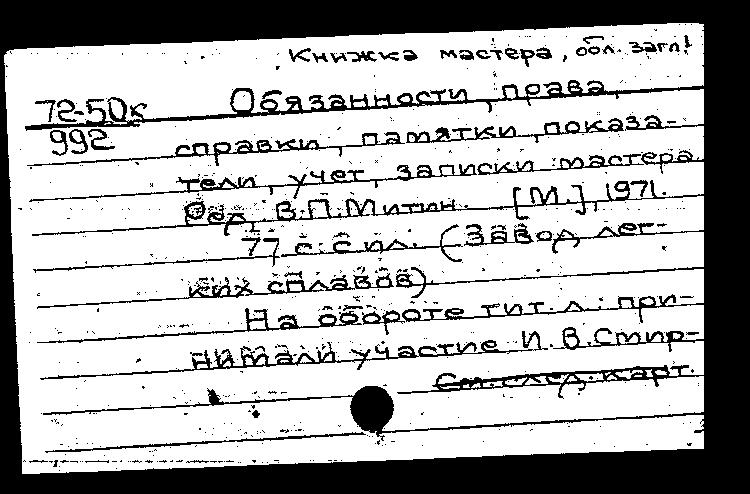 Книжка мастера, обл. загл!
72-50к Обязанности, права,
992
справки, памятки, показа-
тели, учет, записки мастера
Ред. В.П.Митин. [М.], 1971.
77 с. с ил. (Завод лег-
ких сплавов).
На обороте тит. л.: при-
нимали участие И.В.Стир-
См. след. карт.